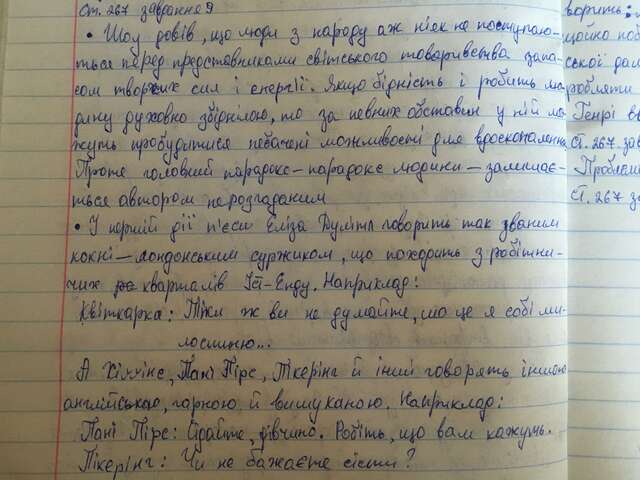 ст. 267 завдання 9
• Шоу довів, що люди з народу аж ніяк не поступаю-
ться перед представниками світського товариства запа-
сом творчих сил і енергії. Якщо бідність і робить лю-
дину духовно збіднілою, то за певних обставин у ній мо-
жуть пробудитися небачені можливості для вдосконалення
Проте головний парадокс – парадокс людини – залишає-
ться автором нерозгаданим
• У першій дії п'єси Еліза Дулітл говорить так званим
кокні – лондонським суржиком, що походить з робітни-
чих кварталів Іст-Енду. Наприклад:
Квіткарка: Тіки ж ви не думайте, шо це я собі ми-
лостиню...
А Хіггінс, Пані Пірс, Пікерінг й інші говорять іншою
англійською, гарною й вишуканою. Наприклад:
Пані Пірс: Сідайте, дівчино. Робіть, що вам кажуть.
Пікерінг: Чи не бажаєте сісти?
ворить:
щойно
ської
робляти
Генрі
Ст. 267
Проблем
Ст. 267